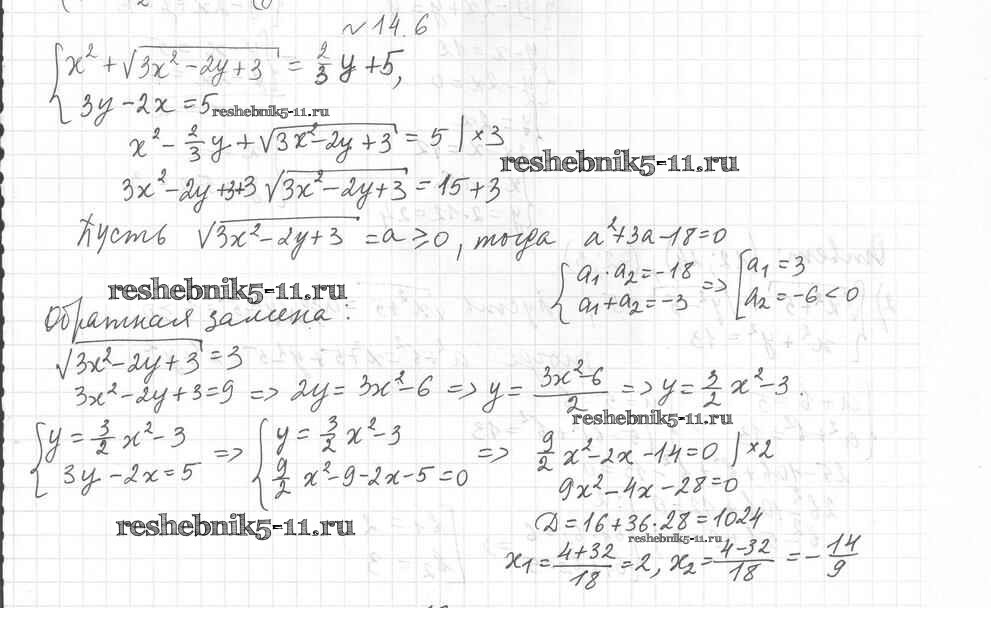 № 14.6
{ x² + √(3x² − 2y + 3) = 2/3 y + 5,
{ 3y − 2x = 5
reshebnik5-11.ru
x² − 2/3 y + √(3x² − 2y + 3) = 5 | ×3
reshebnik5-11.ru
3x² − 2y + 3 + 3 √(3x² − 2y + 3) = 15 + 3
Пусть √(3x² − 2y + 3) = a ⩾ 0, тогда a² + 3a − 18 = 0
{ a₁ · a₂ = −18
{ a₁ + a₂ = −3 => [ a₁ = 3
[ a₂ = −6 < 0
reshebnik5-11.ru
Обратная замена:
√(3x² − 2y + 3) = 3
3x² − 2y + 3 = 9 => 2y = 3x² − 6 => y = (3x² − 6)/2 => y = 3/2 x² − 3.
reshebnik5-11.ru
{ y = 3/2 x² − 3
{ 3y − 2x = 5 => { y = 3/2 x² − 3
{ 9/2 x² − 9 − 2x − 5 = 0 => 9/2 x² − 2x − 14 = 0 | ×2
9x² − 4x − 28 = 0
reshebnik5-11.ru
D = 16 + 36 · 28 = 1024
reshebnik5-11.ru
x₁ = (4 + 32)/18 = 2, x₂ = (4 − 32)/18 = − 14/9